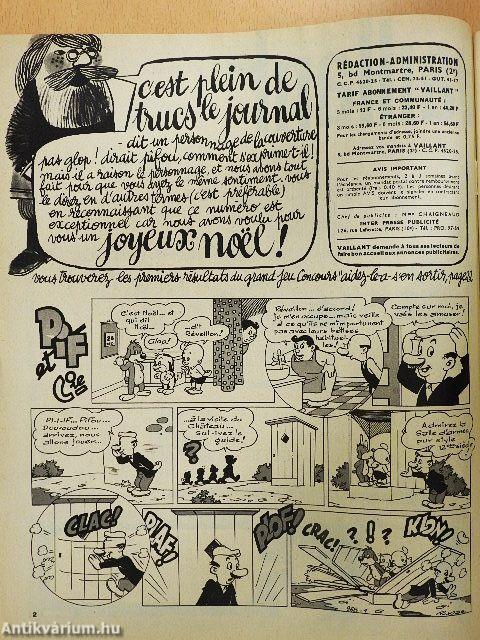 c'est plein de
trucs le journal
dit un personnage de la couverture
pas glop! dirait pifou, comment s'exprime-t-il!
mais il a raison le personnage, et nous avons tout
fait pour que vous ayez le même sentiment. vous
le direz en d'autres termes (c'est préférable)
en reconnaissant que ce numéro est
exceptionnel car nous avons voulu pour
vous un joyeux noël!
RÉDACTION-ADMINISTRATION
5, bd Montmartre, PARIS (2e)
TARIF ABONNEMENT "VAILLANT"
FRANCE ET COMMUNAUTÉ :
ÉTRANGER :
Pour les changements d'adresse, joindre une ancienne
Adressez vos mandats à VAILLANT
5, bd Montmartre, PARIS (2e)
AVIS IMPORTANT
Chef de publicité : Mme CHAIGNEAUD
INTER PRESSE PUBLICITÉ
VAILLANT demande à tous ses lecteurs de
faire bon accueil aux annonces publicitaires.
vous trouverez les premiers résultats du grand jeu concours "aidez-les à s'en sortir, page
PIF
et Cie
C'est Noël...
et qui
dit
Noël...
Glop!
...dit
Réveillon!
Réveillon... d'accord!
je m'en occupe... mais veille
à ce qu'ils ne m'importunent
pas avec leurs bêtises
habituel-
les!
Compte sur moi, je
vais les amuser!
Pi-i-IF... Pifou...
Doudoudou...
arrivez, nous
allons jouer...
?
...à la visite du
Château...
Sui-ivez le
guide!
Admirez la
Salle d'armes
pur style
12ème siècle
CLAC!
PLAF!
PLOF!
CRAC!
? ! ?
2
Antikvárium.hu